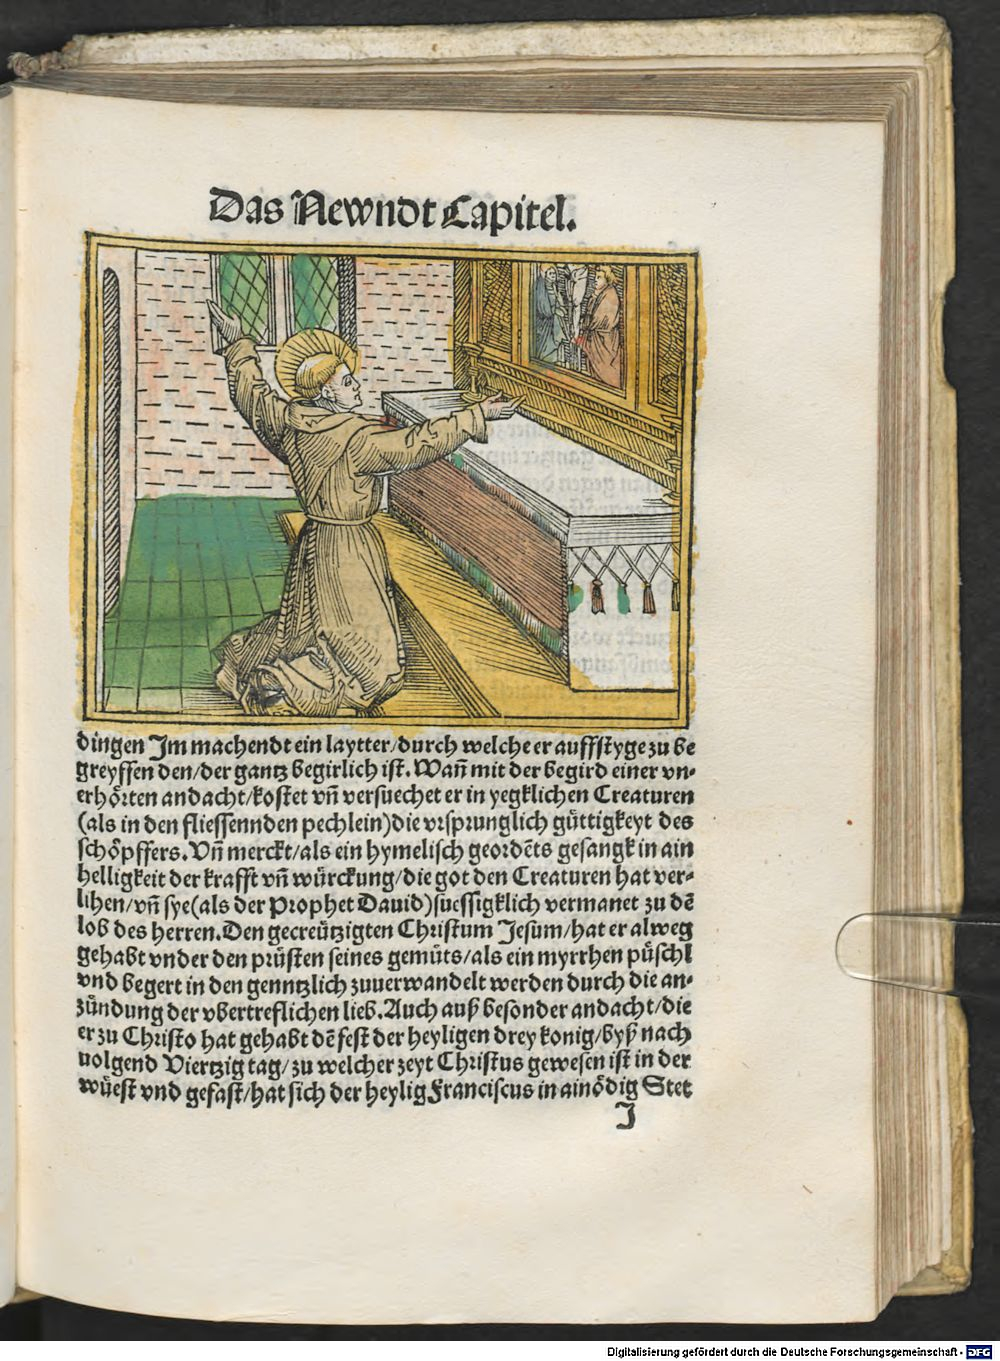 Das Newndt Capitel.
dingen Im machendt ein laytter/durch welche er auffstyge zu be
greyffen den/der gantz begirlich ist. Wañ mit der begird einer vn-
erhörten andacht/kostet vñ versuechet er in yegklichen Creaturen
(als in den fliessennden pechlein)die vrsprunglich güttigkeyt des
schöpffers. Vñ merckt/als ein hymelisch geordẽts gesangk in ain
helligkeit der krafft vñ würckung/die got den Creaturen hat ver-
lihen/vñ sye(als der Prophet Dauid)suessigklich vermanet zu dẽ
lob des herren. Den gecreützigten Christum Jesum/hat er alweg
gehabt vnder den prüsten seines gemüts/als ein myrrhen püschl
vnd begert in den genntzlich zuuerwandelt werden durch die an-
zündung der vbertreflichen lieb. Auch auß besonder andacht/die
er zu Christo hat gehabt dẽ fest der heyligen drey konig/byß nach
uolgend Viertzig tag/zu welcher zeyt Christus gewesen ist in der
wüest vnd gefast/hat sich der heylig Franciscus in ain ödig Stet
J
Digitalisierung gefördert durch die Deutsche Forschungsgemeinschaft - DFG